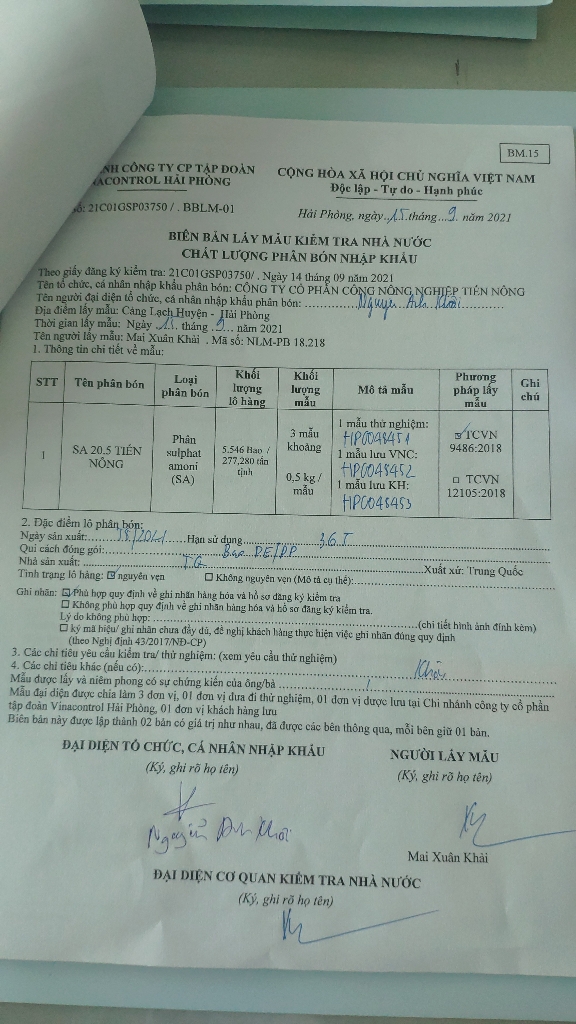 BM.15
NH CÔNG TY CP TẬP ĐOÀN
ACONTROL HẢI PHÒNG
CỘNG HÒA XÃ HỘI CHỦ NGHĨA VIỆT NAM
Độc lập - Tự do - Hạnh phúc
21C01GSP03750 / . BBLM-01
Hải Phòng, ngày..15.tháng...9. năm 2021
BIÊN BẢN LẤY MẪU KIỂM TRA NHÀ NƯỚC
CHẤT LƯỢNG PHÂN BÓN NHẬP KHẨU
Theo giấy đăng ký kiểm tra: 21C01GSP03750/ . Ngày 14 tháng 09 năm 2021
Tên tổ chức, cá nhân nhập khẩu phân bón: CÔNG TY CỔ PHẦN CÔNG NÔNG NGHIỆP TIẾN NÔNG
Tên người đại diện tổ chức, cá nhân nhập khẩu phân bón: Nguyễn Anh Khôi
Địa điểm lấy mẫu: Cảng Lạch Huyện - Hải Phòng
Thời gian lấy mẫu: Ngày .15. tháng .9... năm 2021
Tên người lấy mẫu: Mai Xuân Khải . Mã số: NLM-PB 18.218
1. Thông tin chi tiết về mẫu:
STT Tên phân bón Loại phân bón Khối lượng lô hàng Khối lượng mẫu Mô tả mẫu Phương pháp lấy mẫu Ghi chú
1 SA 20.5 TIẾN NÔNG Phân sulphat amoni (SA) 5.546 Bao / 277,280 tấn tịnh 3 mẫu khoảng 0,5 kg / mẫu 1 mẫu thử nghiệm: HP0048451 1 mẫu lưu VNC: HP0048452 1 mẫu lưu KH: HP0048453 ☑ TCVN 9486:2018 ☐ TCVN 12105:2018
2. Đặc điểm lô phân bón:
Ngày sản xuất: Hạn sử dụng
Qui cách đóng gói: Bao PE/PP
Nhà sản xuất: Xuất xứ: Trung Quốc
Tình trạng lô hàng: ☑ nguyên vẹn ☐ Không nguyên vẹn (Mô tả cụ thể):
Ghi nhãn: ☑ Phù hợp quy định về ghi nhãn hàng hóa và hồ sơ đăng ký kiểm tra
☐ Không phù hợp quy định về ghi nhãn hàng hóa và hồ sơ đăng ký kiểm tra.
Lý do không phù hợp: (chi tiết hình ảnh đính kèm)
☐ ký mã hiệu/ ghi nhãn chưa đầy đủ, đề nghị khách hàng thực hiện việc ghi nhãn đúng quy định
(theo Nghị định 43/2017/NĐ-CP)
3. Các chỉ tiêu yêu cầu kiểm tra/ thử nghiệm: (xem yêu cầu thử nghiệm)
4. Các chỉ tiêu khác (nếu có): Không
Mẫu được lấy và niêm phong có sự chứng kiến của ông/bà
Mẫu đại diện được chia làm 3 đơn vị, 01 đơn vị đưa đi thử nghiệm, 01 đơn vị được lưu tại Chi nhánh công ty cổ phần
tập đoàn Vinacontrol Hải Phòng, 01 đơn vị khách hàng lưu
Biên bản này được lập thành 02 bản có giá trị như nhau, đã được các bên thông qua, mỗi bên giữ 01 bản.
ĐẠI DIỆN TỔ CHỨC, CÁ NHÂN NHẬP KHẨU
NGƯỜI LẤY MẪU
(Ký, ghi rõ họ tên)
(Ký, ghi rõ họ tên)
Nguyễn Anh Khôi
Mai Xuân Khải
ĐẠI DIỆN CƠ QUAN KIỂM TRA NHÀ NƯỚC
(Ký, ghi rõ họ tên)